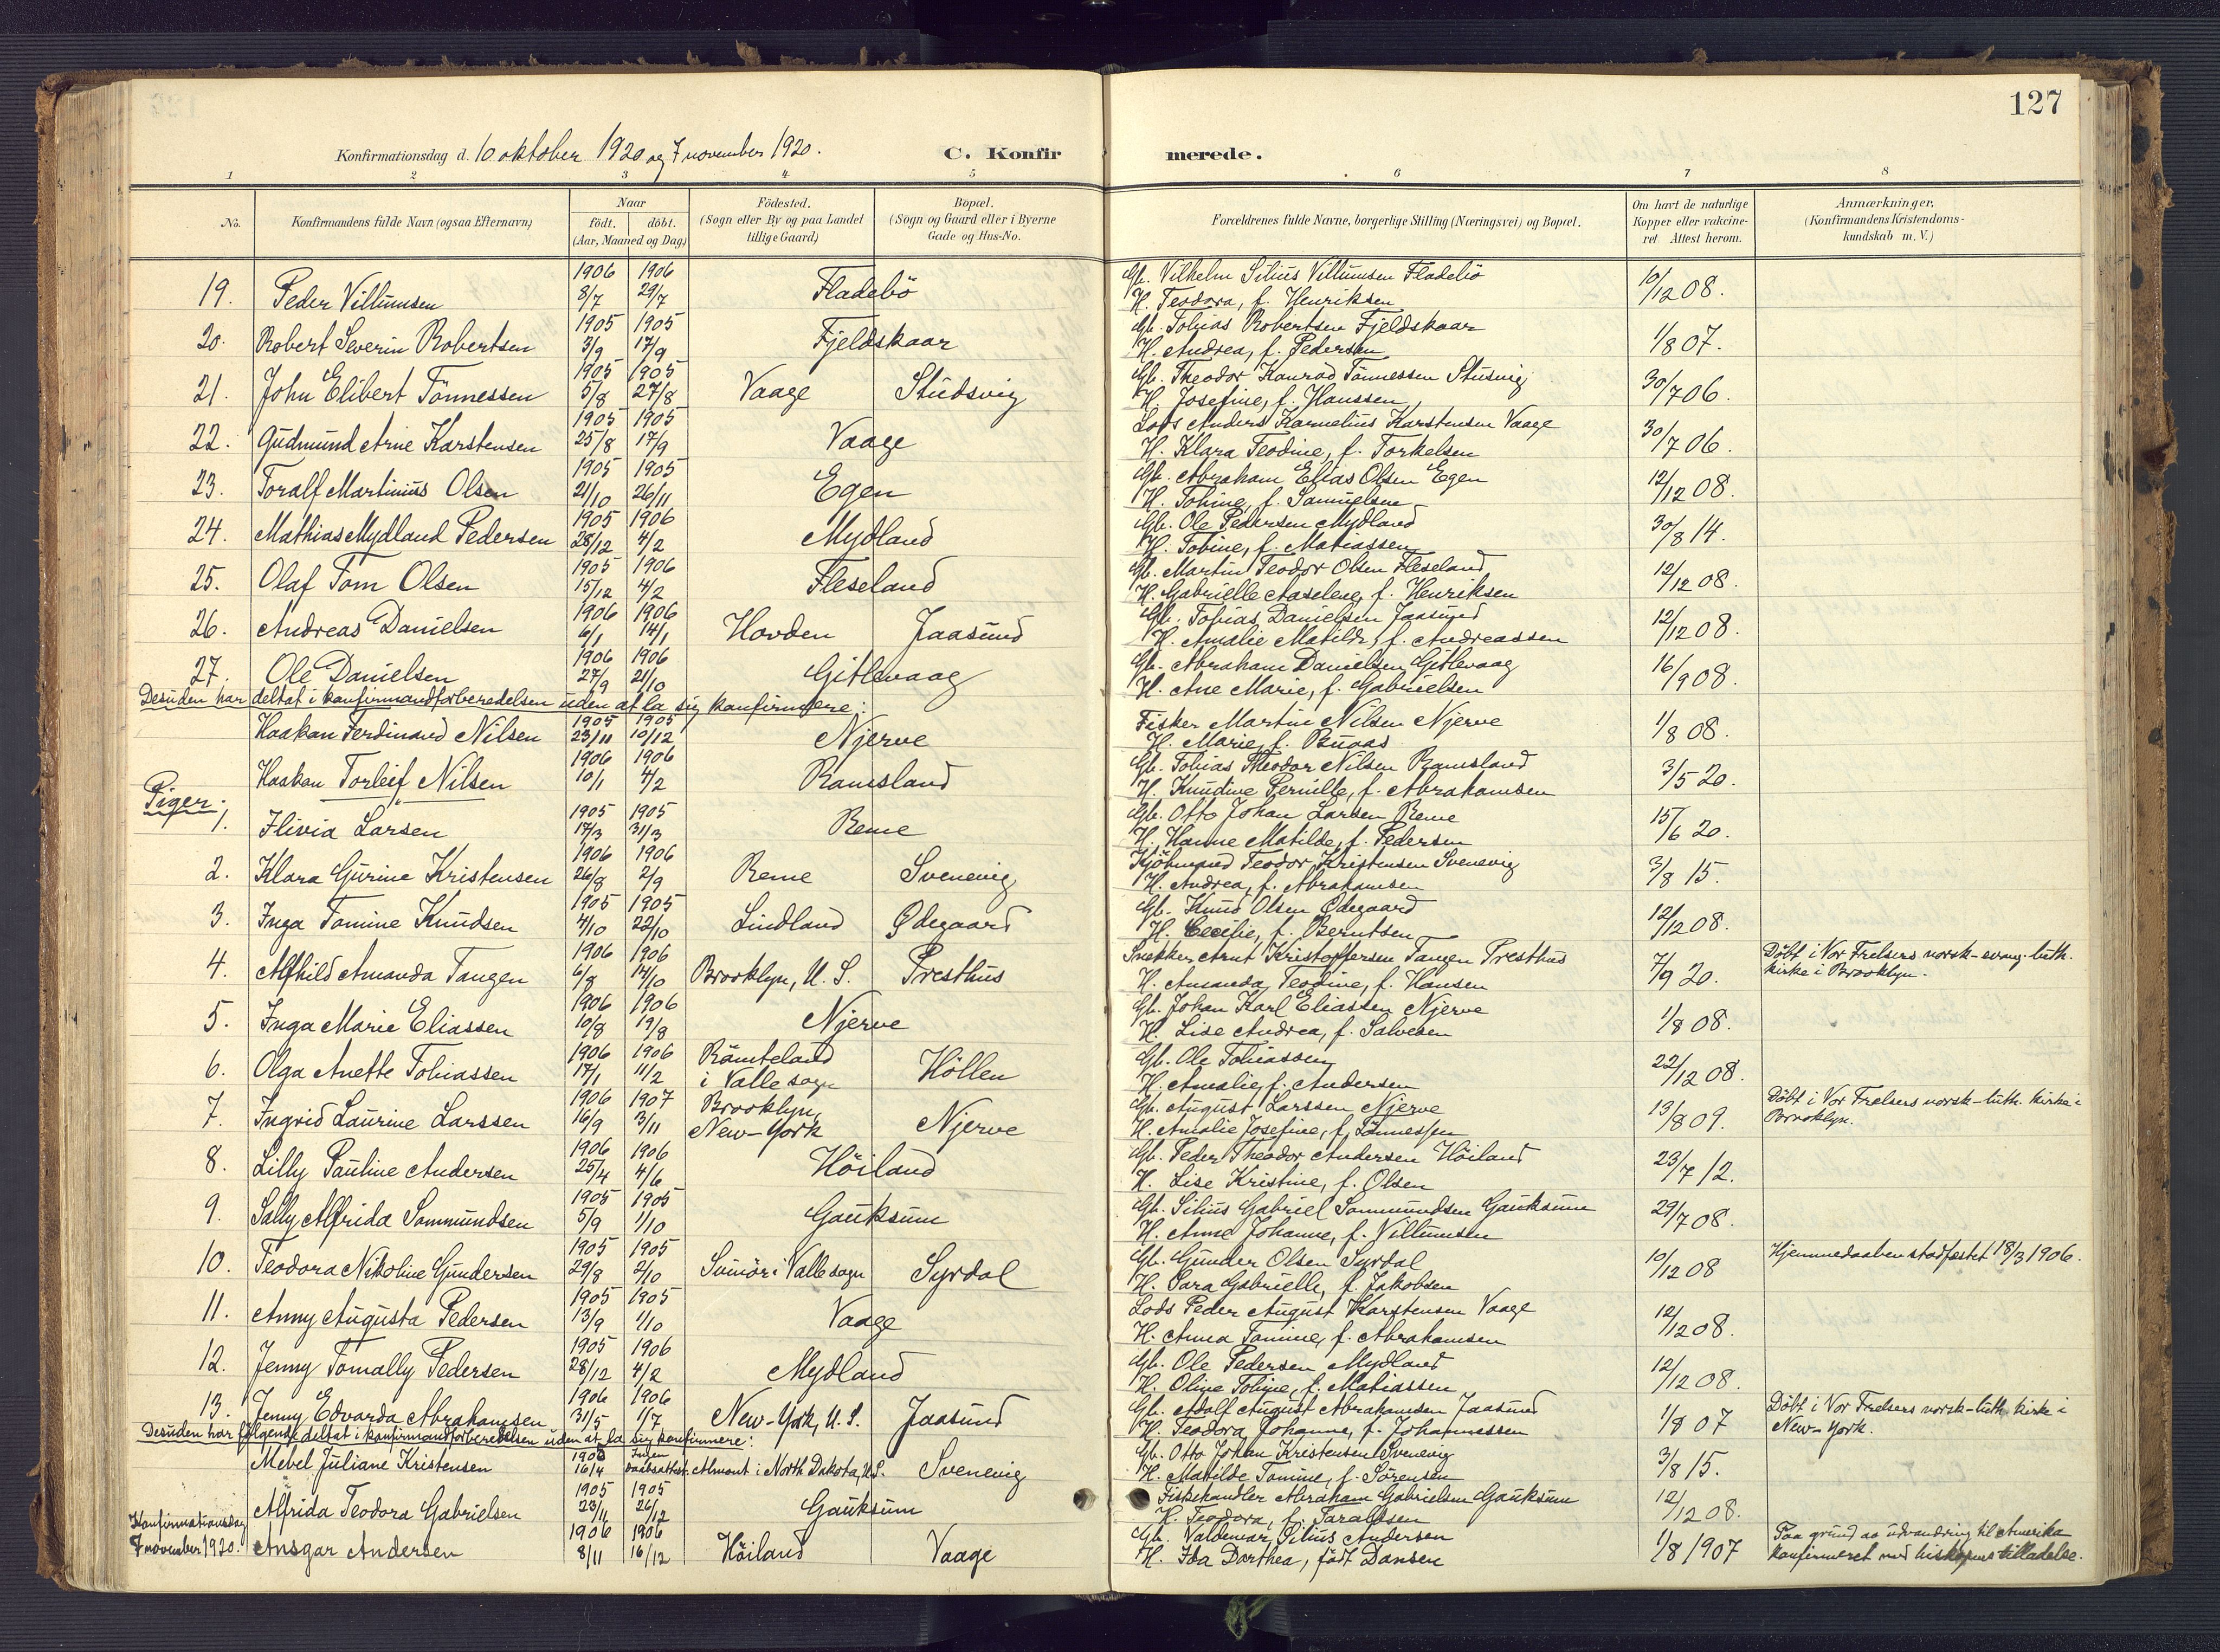 127
Konfirmationsdag d. 10 oktober 1920 og 7 november 1920.
C. Konfirmerede.
1 2 3 4 5 6 7 8
No.
Konfirmandens fulde Navn (ogsaa Efternavn)
Naar
födt. döbt.
(Aar, Maaned og Dag)
Födested.
(Sogn eller By og paa Landet
tillige Gaard)
Bopæl.
(Sogn og Gaard eller i Byerne
Gade og Hus-No.
Forældrenes fulde Navne, borgerlige Stilling (Næringsvei) og Bopæl.
Om havt de naturlige
Kopper eller vakcine-
ret Attest herom.
Anmærkninger.
(Konfirmandens Kristendoms-
kundskab m. V.)
19. Peder Villumsen 1906 8/7 1906 29/7 Fladebö
Gb. Vilhelm Silius Villumsen Fladebö
H. Teodora, f. Henriksen 10/12 08.
20. Robert Severin Robertsen 1905 3/9 1905 17/9 Fjeldskaar
Gb. Tobias Robertsen Fjeldskaar
H. Andrea, f. Pedersen 1/8 07.
21. John Elibert Tönnessen 1905 5/8 1905 27/8 Vaage Studsvig
Gb. Theodor Konrad Tönnessen Stusvig
H. Josefine, f. Hanssen 30/7 06.
22. Gudmund Arne Karstensen 1905 25/8 1905 17/9 Vaage
Lods Anders Kornelius Karstensen Vaage
H. Klara Teodine, f. Torkelsen 30/7 06.
23. Toralf Martinius Olsen 1905 21/10 1905 26/11 Egen
Gb. Abraham Elias Olsen Egen
H. Tobine, f. Samuelsen 12/12 08.
24. Mathias Mydland Pedersen 1905 28/12 1906 4/2 Mydland
Gb. Ole Pedersen Mydland
H. Tobine, f. Matiassen 30/8 14.
25. Olaf Tom Olsen 1905 15/12 1906 4/2 Fleseland
Gb. Martin Teodor Olsen Fleseland
H. Gabrielle Aaselene, f. Henriksen 12/12 08.
26. Andreas Danielsen 1906 6/1 1906 14/1 Hovden Jaasund
Gb. Tobias Danielsen Jaasund
H. Amalie Matilde, f. Andreassen 12/12 08.
27. Ole Danielsen 1906 27/9 1906 21/10 Gitlevaag
Gb. Abraham Danielsen Gitlevaag
H. Ane Marie, f. Gabrielsen 16/9 08.
Desuden har deltat i konfirmandforberedelsen uden at la sig konfirmere:
Haakon Ferdinand Nilsen 1905 23/11 1905 10/12 Njerve
Fisker Martin Nilsen Njerve
H. Marie, f. Buaas 1/8 08.
Haakon Torleif Nilsen 1906 10/1 1906 4/2 Ramsland
Gb. Tobias Theodor Nilsen Ramsland
H. Knudine Pernille, f. Abrahamsen 3/5 20.
Piger:
1. Flivia Larsen 1905 17/3 1905 31/3 Reme
Gb. Otto Johan Larsen Reme
H. Hanne Matilde, f. Pedersen 15/6 20.
2. Klara Gurine Kristensen 1906 26/8 1906 2/9 Reme Svenevig
Kjöbmand Teodor Kristensen Svenevig
H. Andrea, f. Abrahamsen 3/8 15.
3. Inga Tomine Knudsen 1905 4/10 1905 22/10 Lindland Ødegaard
Gb. Knud Olsen Ødegaard
H. Cecilie, f. Berntsen 12/12 08.
4. Alfhild Amanda Tangen 1906 6/8 1906 14/10 Brooklyn, U. S. Presthus
Snekker Arnt Kristoffersen Tangen Presthus
H. Amanda Teodine, f. Hansen 7/9 20.
Döbt i Vor Frelsers norsk-evang.-luth.
kirke i Brooklyn.
5. Inga Marie Eliassen 1906 10/8 1906 19/8 Njerve
Gb. Johan Karl Eliassen Njerve
H. Lise Andrea, f. Salvesen 1/8 08.
6. Olga Anette Tobiassen 1906 17/1 1906 11/2 Rämteland
i Valle sogn Höllen
Gb. Ole Tobiassen
H. Amalie, f. Andersen 22/12 08.
7. Ingrid Laurine Larssen 1906 16/9 1907 3/11 Brooklyn,
New-York Njerve
Gb. August Larssen Njerve
H. Amalie Josefine, f. Tönnessen 13/8 09.
Döbt i Vor Frelsers norsk-luth. kirke i
Brooklyn.
8. Lilly Pauline Andersen 1906 25/4 1906 4/6 Höiland
Gb. Peder Theodor Andersen Höiland
H. Lise Kristine, f. Olsen 23/7 12.
9. Sally Alfrida Sommundsen 1905 5/9 1905 1/10 Gauksum
Gb. Silius Gabriel Sommundsen Gauksum
H. Anne Johanne, f. Villumsen 29/7 08.
10. Teodora Nikoline Gundersen 1905 29/8 1905 2/10 Svinör i Valle sogn Syrdal
Gb. Gunder Olsen Syrdal
H. Sara Gabrielle, f. Jakobsen 10/12 08
Hjemmedaaben stadfestet 18/3 1906.
11. Anny Augusta Pedersen 1905 13/9 1905 1/10 Vaage
Lods Peder August Karstensen Vaage
H. Anna Tomine, f. Abrahamsen 12/12 08.
12. Jenny Tomally Pedersen 1905 28/12 1906 4/2 Mydland
Gb. Ole Pedersen Mydland
H. Oline Tobine, f. Matiassen 12/12 08.
13. Jenny Edvarda Abrahamsen 1906 31/5 1906 1/7 New-York, U. S. Jaasund
Gb. Adolf August Abrahamsen Jaasund
H. Teodora Johanne, f. Johannessen 1/8 07
Döbt i Vor Frelsers norsk-luth. kirke i
New-York.
Desuden har fölgende deltat i konfirmandforberedelsen uden at la sig konfirmere:
Mebel Juliane Kristensen 1906 16/4 Ingen daabsattest. Almont i North Dakota, U.S. Svenevig
Gb. Otto Johan Kristensen Svenevig
H. Matilde Tomine, f. Sörensen 3/8 15.
Alfrida Teodora Gabrielsen 1905 23/11 1905 26/12 Gauksum
Fiskehandler Abraham Gabrielsen Gauksum
H. Teodora, f. Taraldsen 12/12 08.
Konfirmationsdag
7 november 1920. Ansgar Andersen 1906 8/11 1906 16/12 Höiland Vaage
Gb. Valdemar Silius Andersen
H. Ida Dorthea, födt Dansen 1/8 1907
Paa grund av udvandring til Amerika
konfirmeret med biskopens tilladelse.